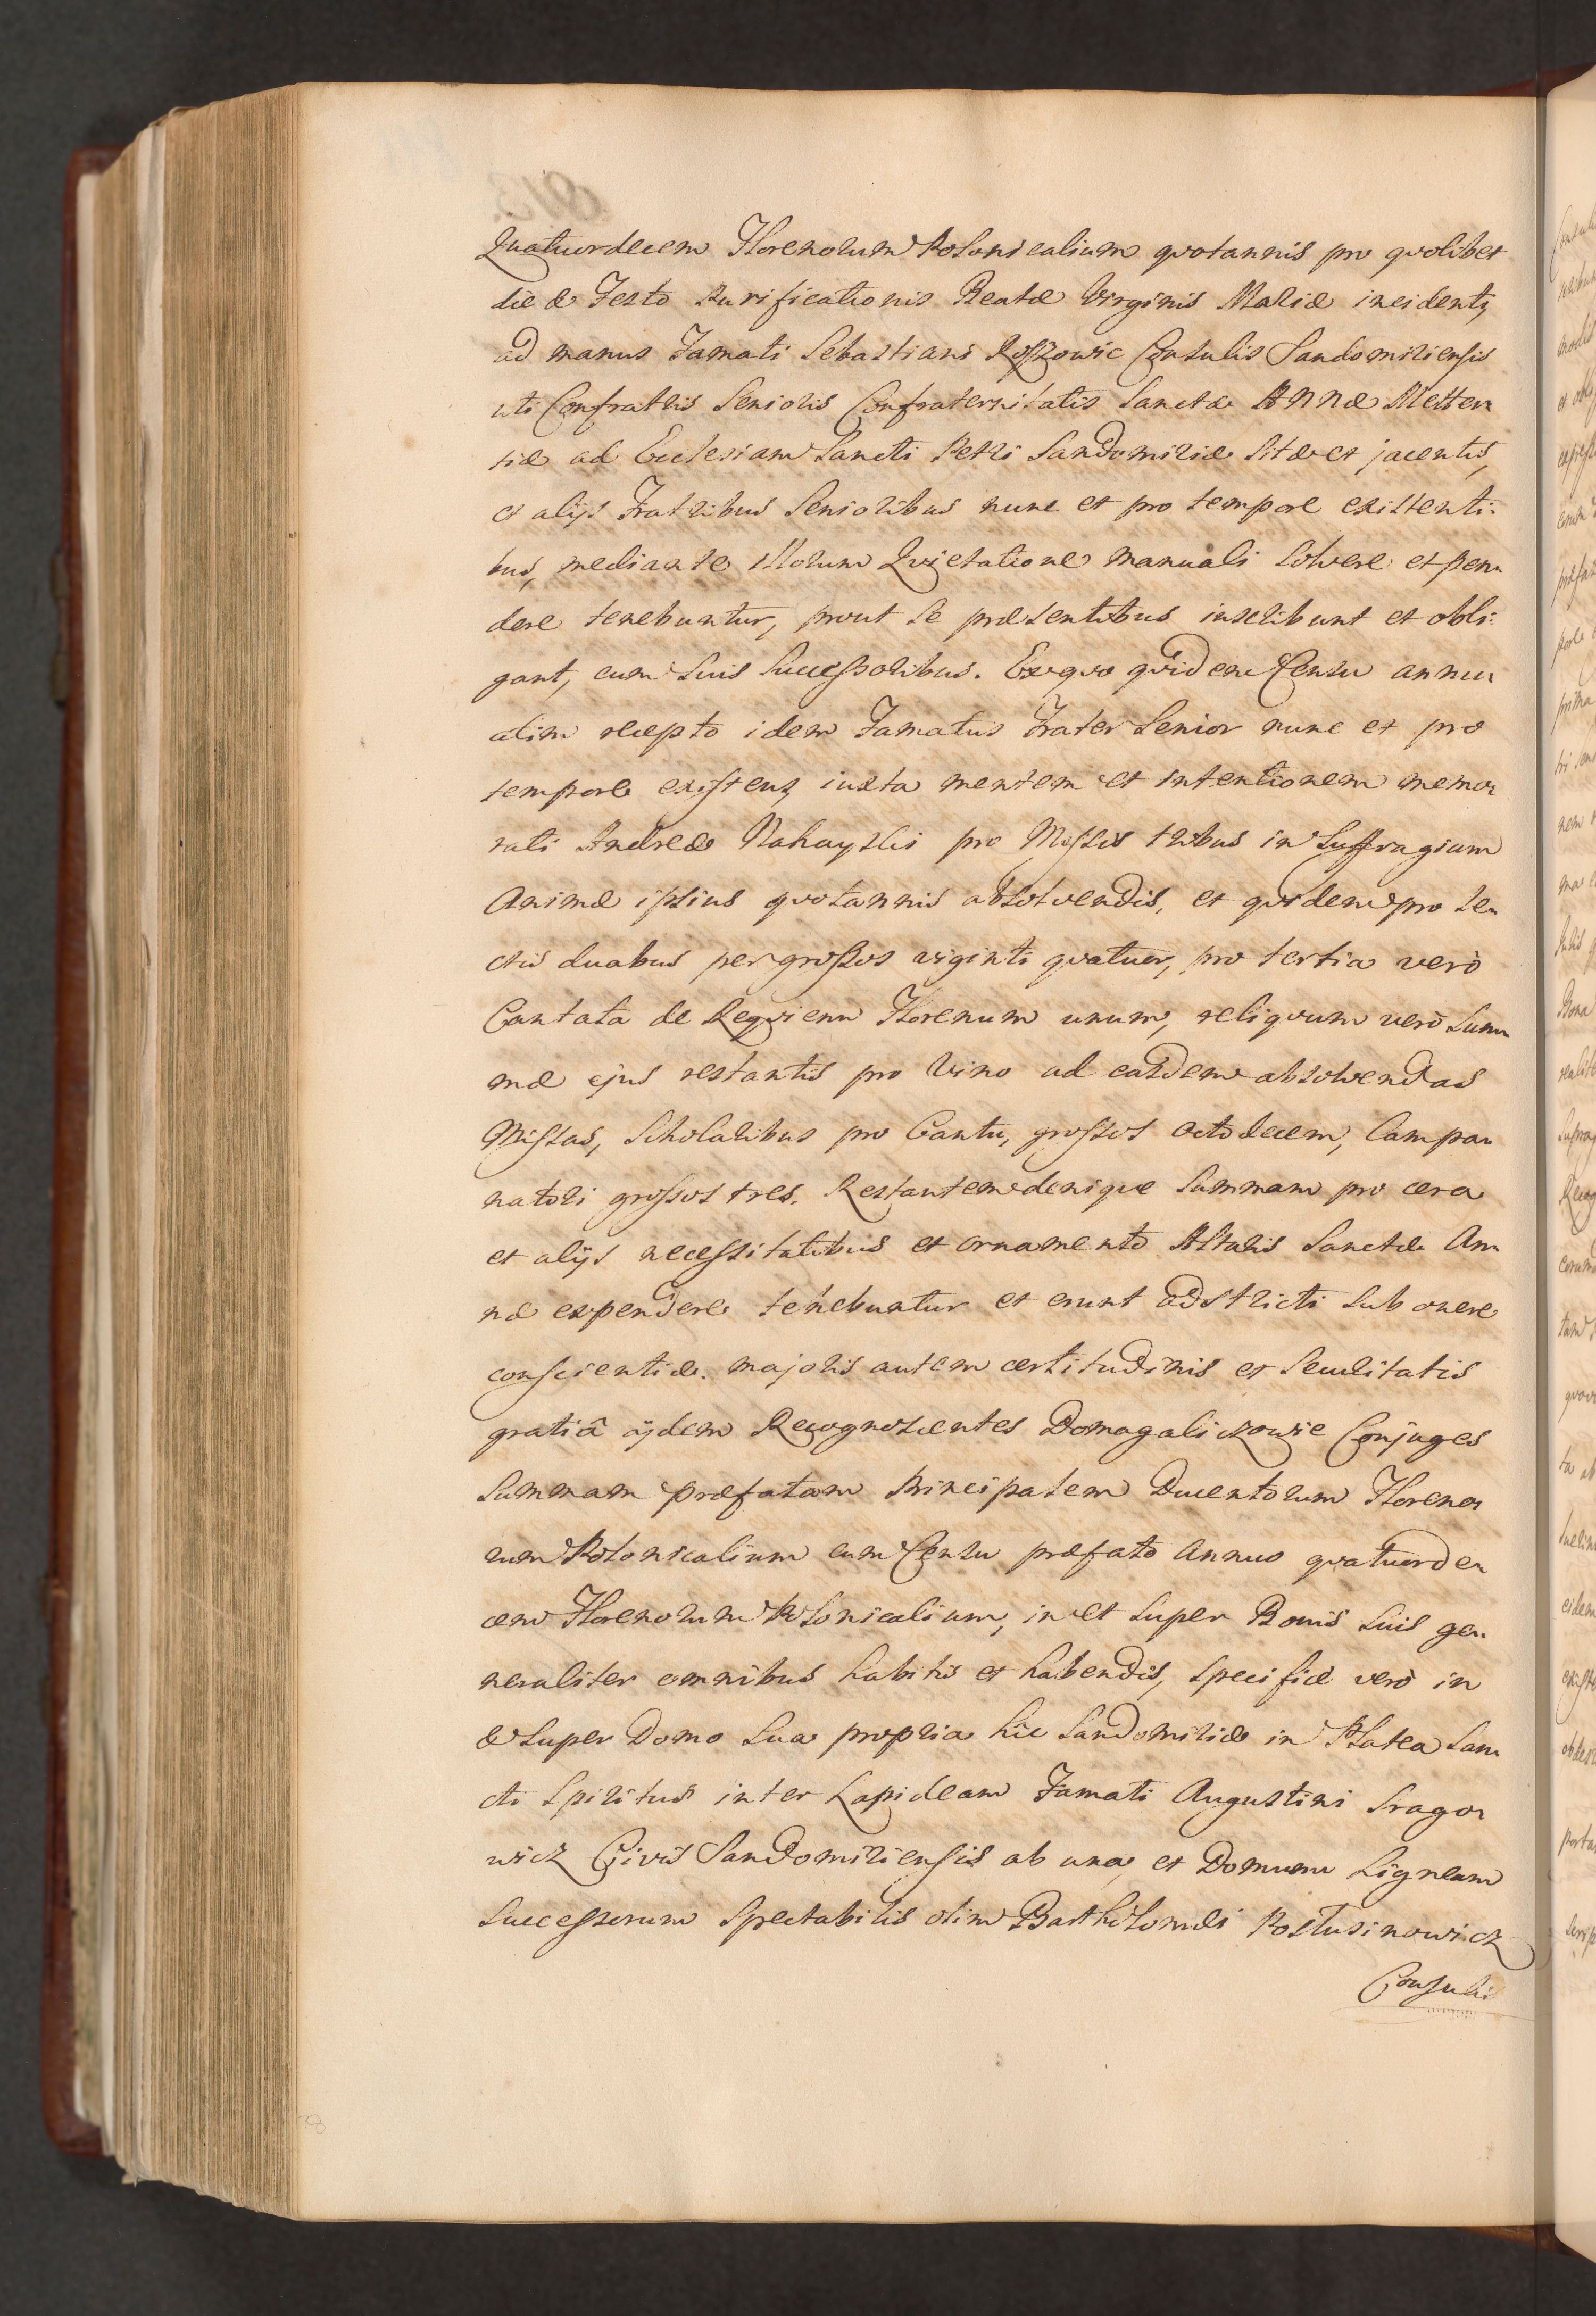 Quatuordecem Florenorum Polonicalium quotannis pro quolibet
die & Festo Purificationis Beatæ Virginis Mariæ incidenti,
ad manus Famati Sebastiani Roszowic Consulis Sandomiriensis
uti Confratris Senioris Confraternitatis Sanctæ Annæ Metter-
tiæ ad Ecclesiam Sancti Petri Sandomiriæ sitæ et jacentis,
et alijs Fratribus Senioribus nunc et pro tempore existenti-
bus, mediante illorum Quietatione manuali solvere et pen-
dere tenebuntur, prout se præsentibus inscribunt et obli-
gant, cum suis Successoribus. Ex quo quidem Censu annu-
atim recepto idem Famatus Frater Senior nunc et pro
tempore existens, iuxta mentem et intentionem memo-
rati Andreæ Nahayski pro Missis tribus in Suffragium
Animæ ipsius quotannis absolvendis, et quidem pro le-
ctis duabus per grossos viginti quatuor, pro tertia verò
Cantata de Requiem Florenum unum, reliquum verò Sum-
mæ ejus restantis pro Vino ad easdem absolvendas
Missas, Scholaribus pro Cantu, grossos octodecem, Campa-
natori grossos tres. Restantem denique Summam pro cera
et alijs necessitatibus et ornamento Altaris Sanctæ An-
næ expendere tenebuntur et erunt adstricti sub onere
conscientiæ. majoris autem certitudinis et Securitatis
gratiâ ijdem Recognoscentes Domagaliczowie Conjuges
Summam præfatam Principalem Ducentorum Floreno-
rum Polonicalium cum Censu præfato annuo quatuorde-
cem Florenorum Polonicalium, in et super Bonis suis ge-
neraliter omnibus habitis et habendis, specificæ verò in
& super Domo sua propria hic Sandomiriæ in Platea San-
cti Spiritus inter Lapideam Famati Augustini Srago-
wicz Civis Sandomiriensis ab una, et Domum Ligneam
Successorum Spectabilis olim Bartholomæi Postusinowicz
Consulis